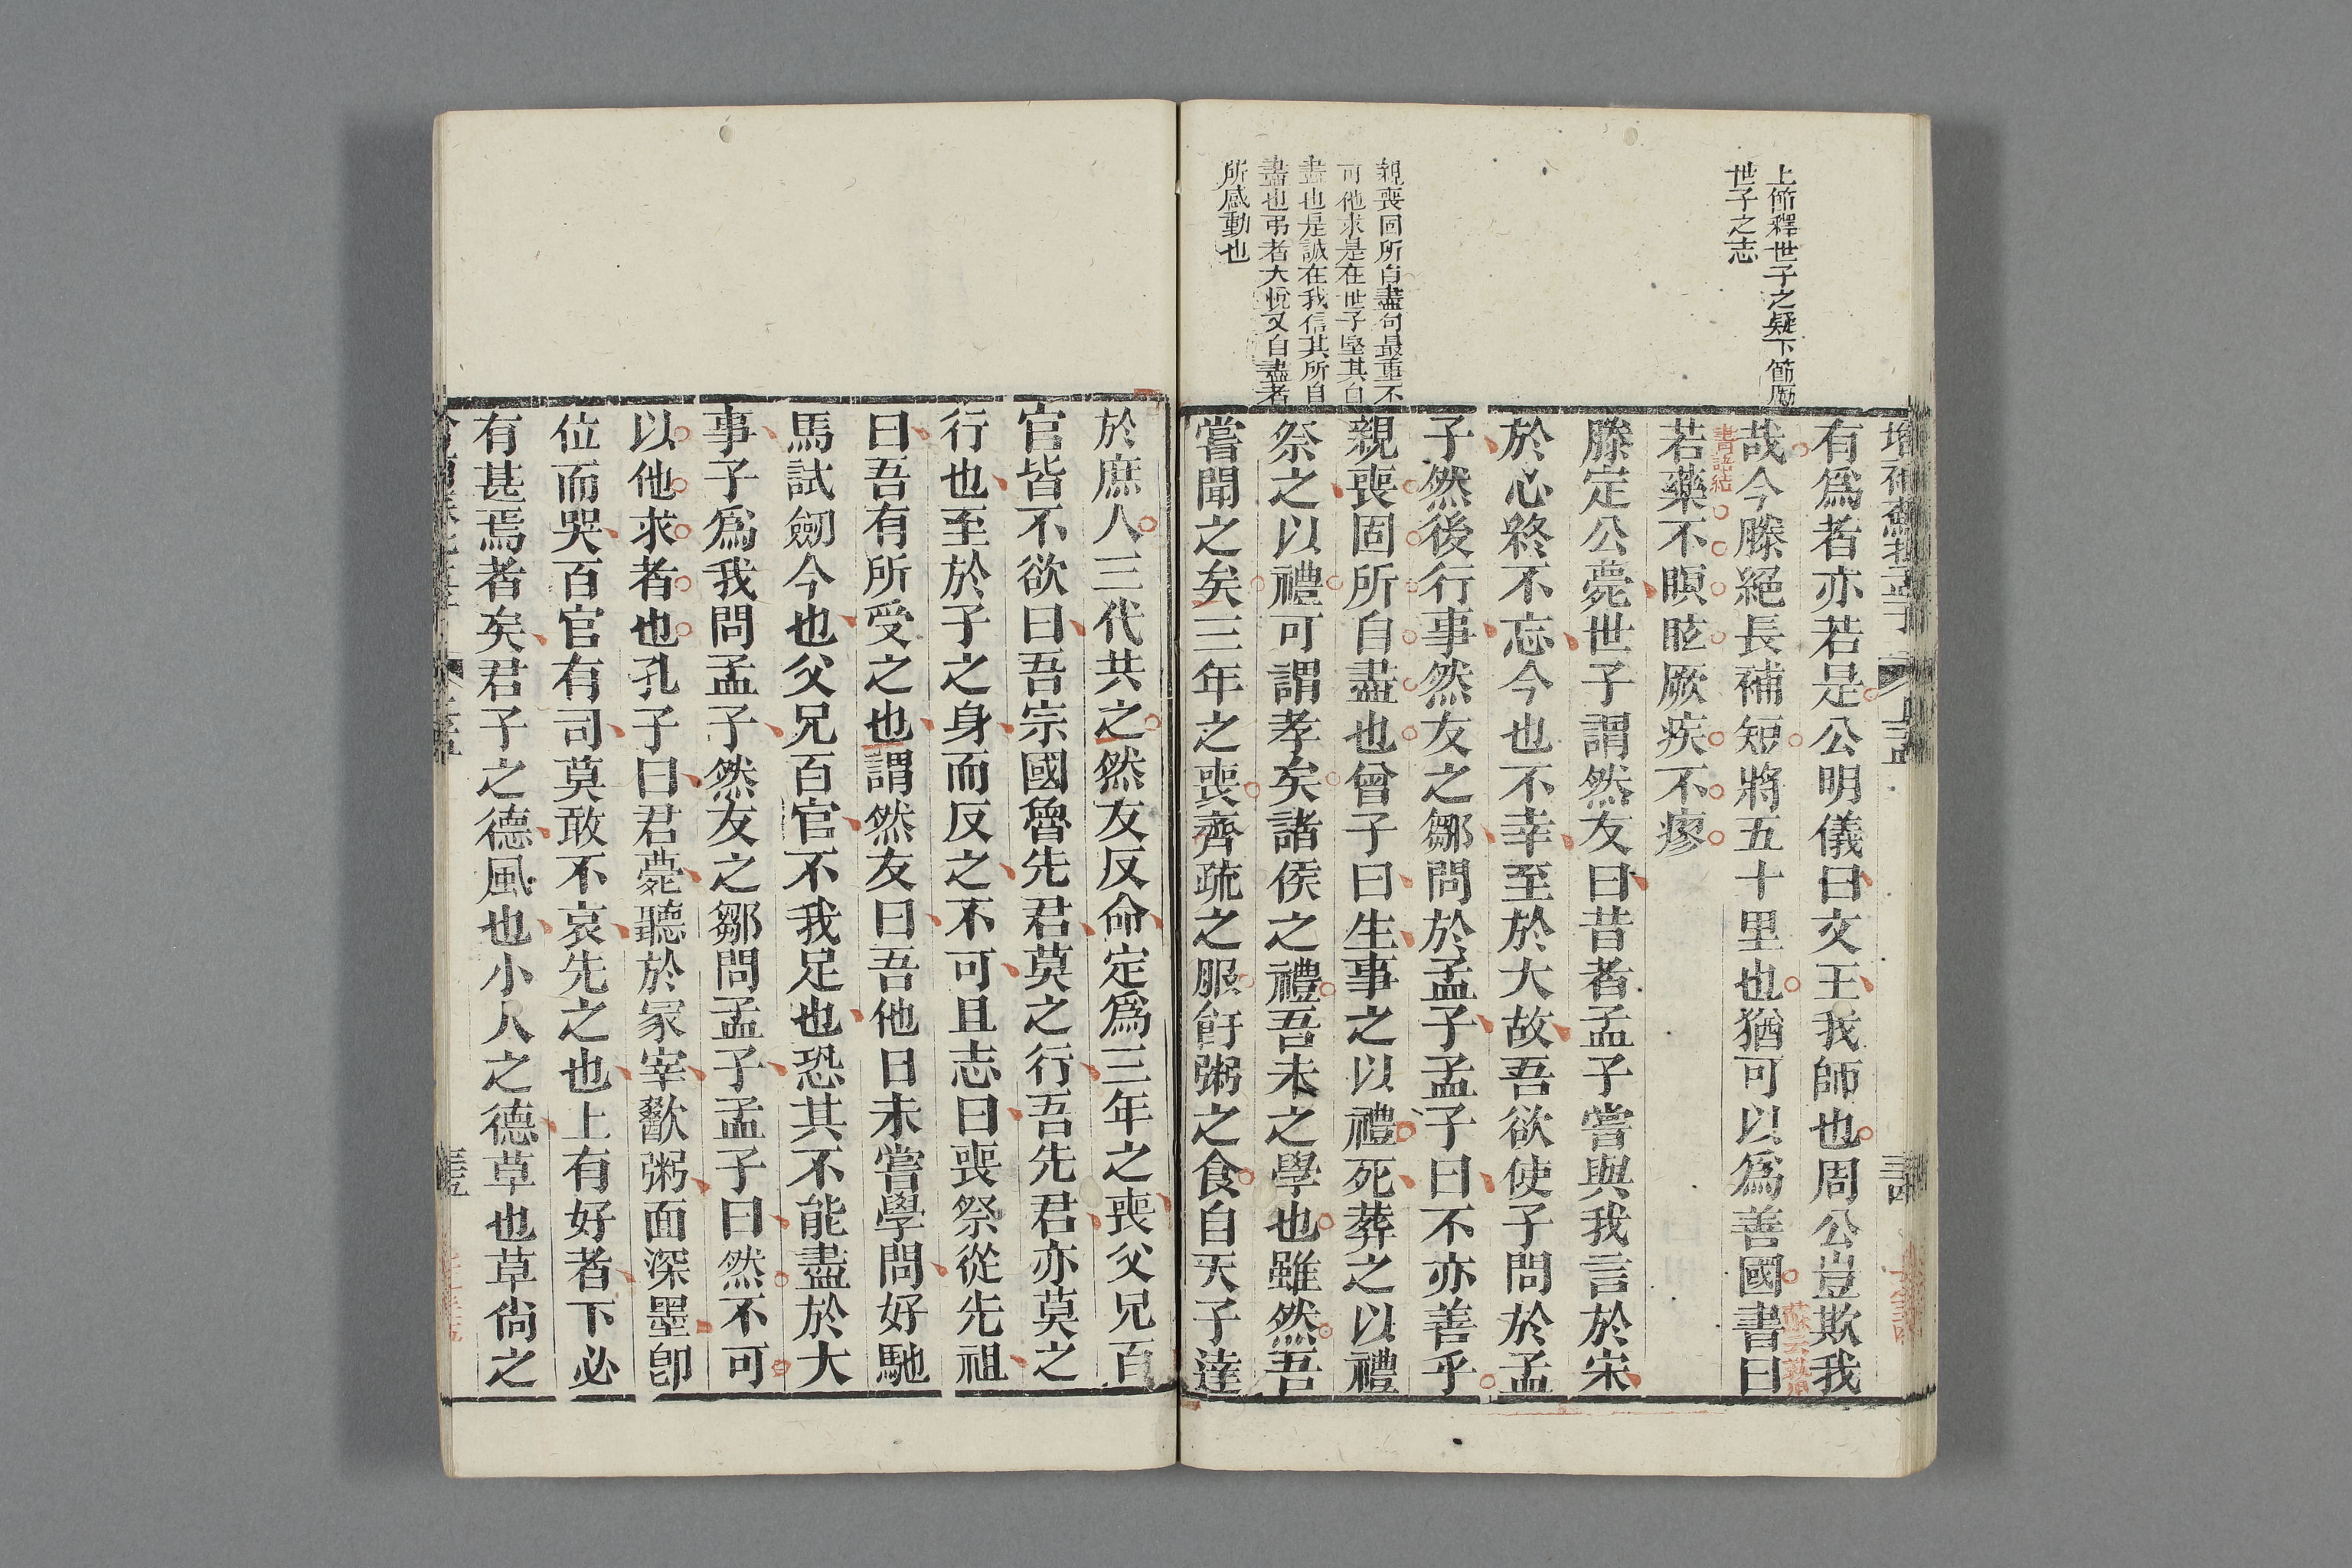 上節釋世子之疑下節勵
世子之志
親喪固所自盡句最重不
可他求是在世子堅其自
盡也是誠在我信其所自
盡也弔者大悅又自盡者
所感動也
有爲者亦若是公明儀曰文王我師也周公豈欺我
哉今滕絕長補短將五十里也猶可以爲善國書曰
書語結
若藥不瞑眩厥疾不瘳
滕定公薨世子謂然友曰昔者孟子嘗與我言於宋
於心終不忘今也不幸至於大故吾欲使子問於孟
子然後行事然友之鄒問於孟子孟子曰不亦善乎
親喪固所自盡也曾子曰生事之以禮死葬之以禮
祭之以禮可謂孝矣諸侯之禮吾未之學也雖然吾
嘗聞之矣三年之喪齊疏之服飦粥之食自天子達
於庶人三代共之然友反命定爲三年之喪父兄百
官皆不欲曰吾宗國魯先君莫之行吾先君亦莫之
行也至於子之身而反之不可且志曰喪祭從先祖
曰吾有所受之也謂然友曰吾他日未嘗學問好馳
馬試劒今也父兄百官不我足也恐其不能盡於大
事子爲我問孟子然友之鄒問孟子孟子曰然不可
以他求者也孔子曰君薨聽於冢宰歠粥面深墨卽
位而哭百官有司莫敢不哀先之也上有好者下必
有甚焉者矣君子之德風也小人之德草也草尚之